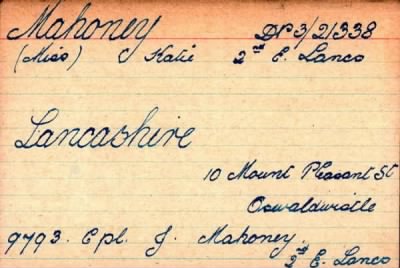 Mahoney DP3/21338
(Miss) Katie 2nd E. Lancs
Lancashire
10 Mount Pleasant St
Oswaldwistle
9793. Cpl. J. Mahoney.
2nd E. Lancs